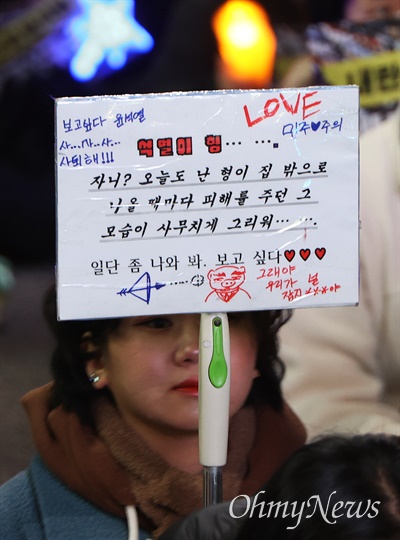 보고싶다 윤석열
사...사..사..
사퇴해!!!
LOVE
민주♥주의
석열이 형… ….
자니? 오늘도 난 형이 집 밖으로
나올 때마다 피해를 주던 그
모습이 사무치게 그리워… ….
일단 좀 나와 봐. 보고 싶다♥♥♥
그래야
우리가 널
잡지
내란
OhmyNews